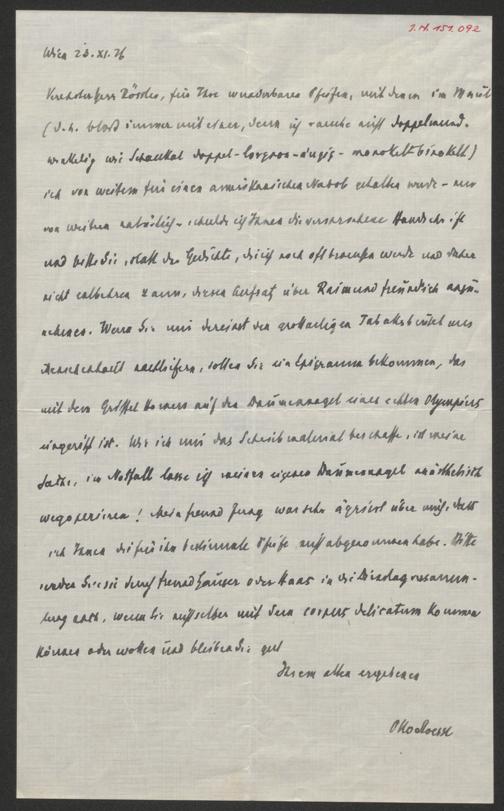 I.N. 151.092
Wien 23.XI.26
Verehrter Herr Rössler, für Ihre wunderbaren Pfeifen, mit denen im Maul
(d.h. bloß immer mit einer, denn ich rauche nicht doppelmund-
winkelig wie Schaukal doppel-lorgnon-äugig-monokelt-binokelt)
ich von weitem für einen amerikanischen Nabob gehalten werde - nur
von weitem natürlich - schulde ich Ihnen die versprochene Handschrift
und bitte Sie, statt der Gedichte, die ich noch oft brauchen werde und daher
nicht entbehren kann, diesen Aufsatz über Raimund freundlich anzu-
nehmen. Wenn Sie mir dereinst den großartigen Tabaksbeutel aus
Menschenhaut nachliefern, sollen Sie ein Epigramm bekommen, das
mit dem Griffel Homers auf den Daumennagel eines echten Olympiers
eingeritzt ist. Wie ich mir das Schreibmaterial beschaffe, ist meine
Sache, im Notfall lasse ich meinen eigenen Daumennagel anästhetisch
wegoperieren! Mein Freund Jung war sehr agrösst über mich, daß
ich Ihnen die für ihn bestimmte Pfeife nicht abgenommen habe. Bitte
senden Sie sie durch Freund Hauser oder Haas in die Dienstagszusammen-
kunft, wenn Sie nicht selber mit dem corpus delicatum kommen
können oder wollen und bleiben Sie gut
Ihrem alten ergebenen